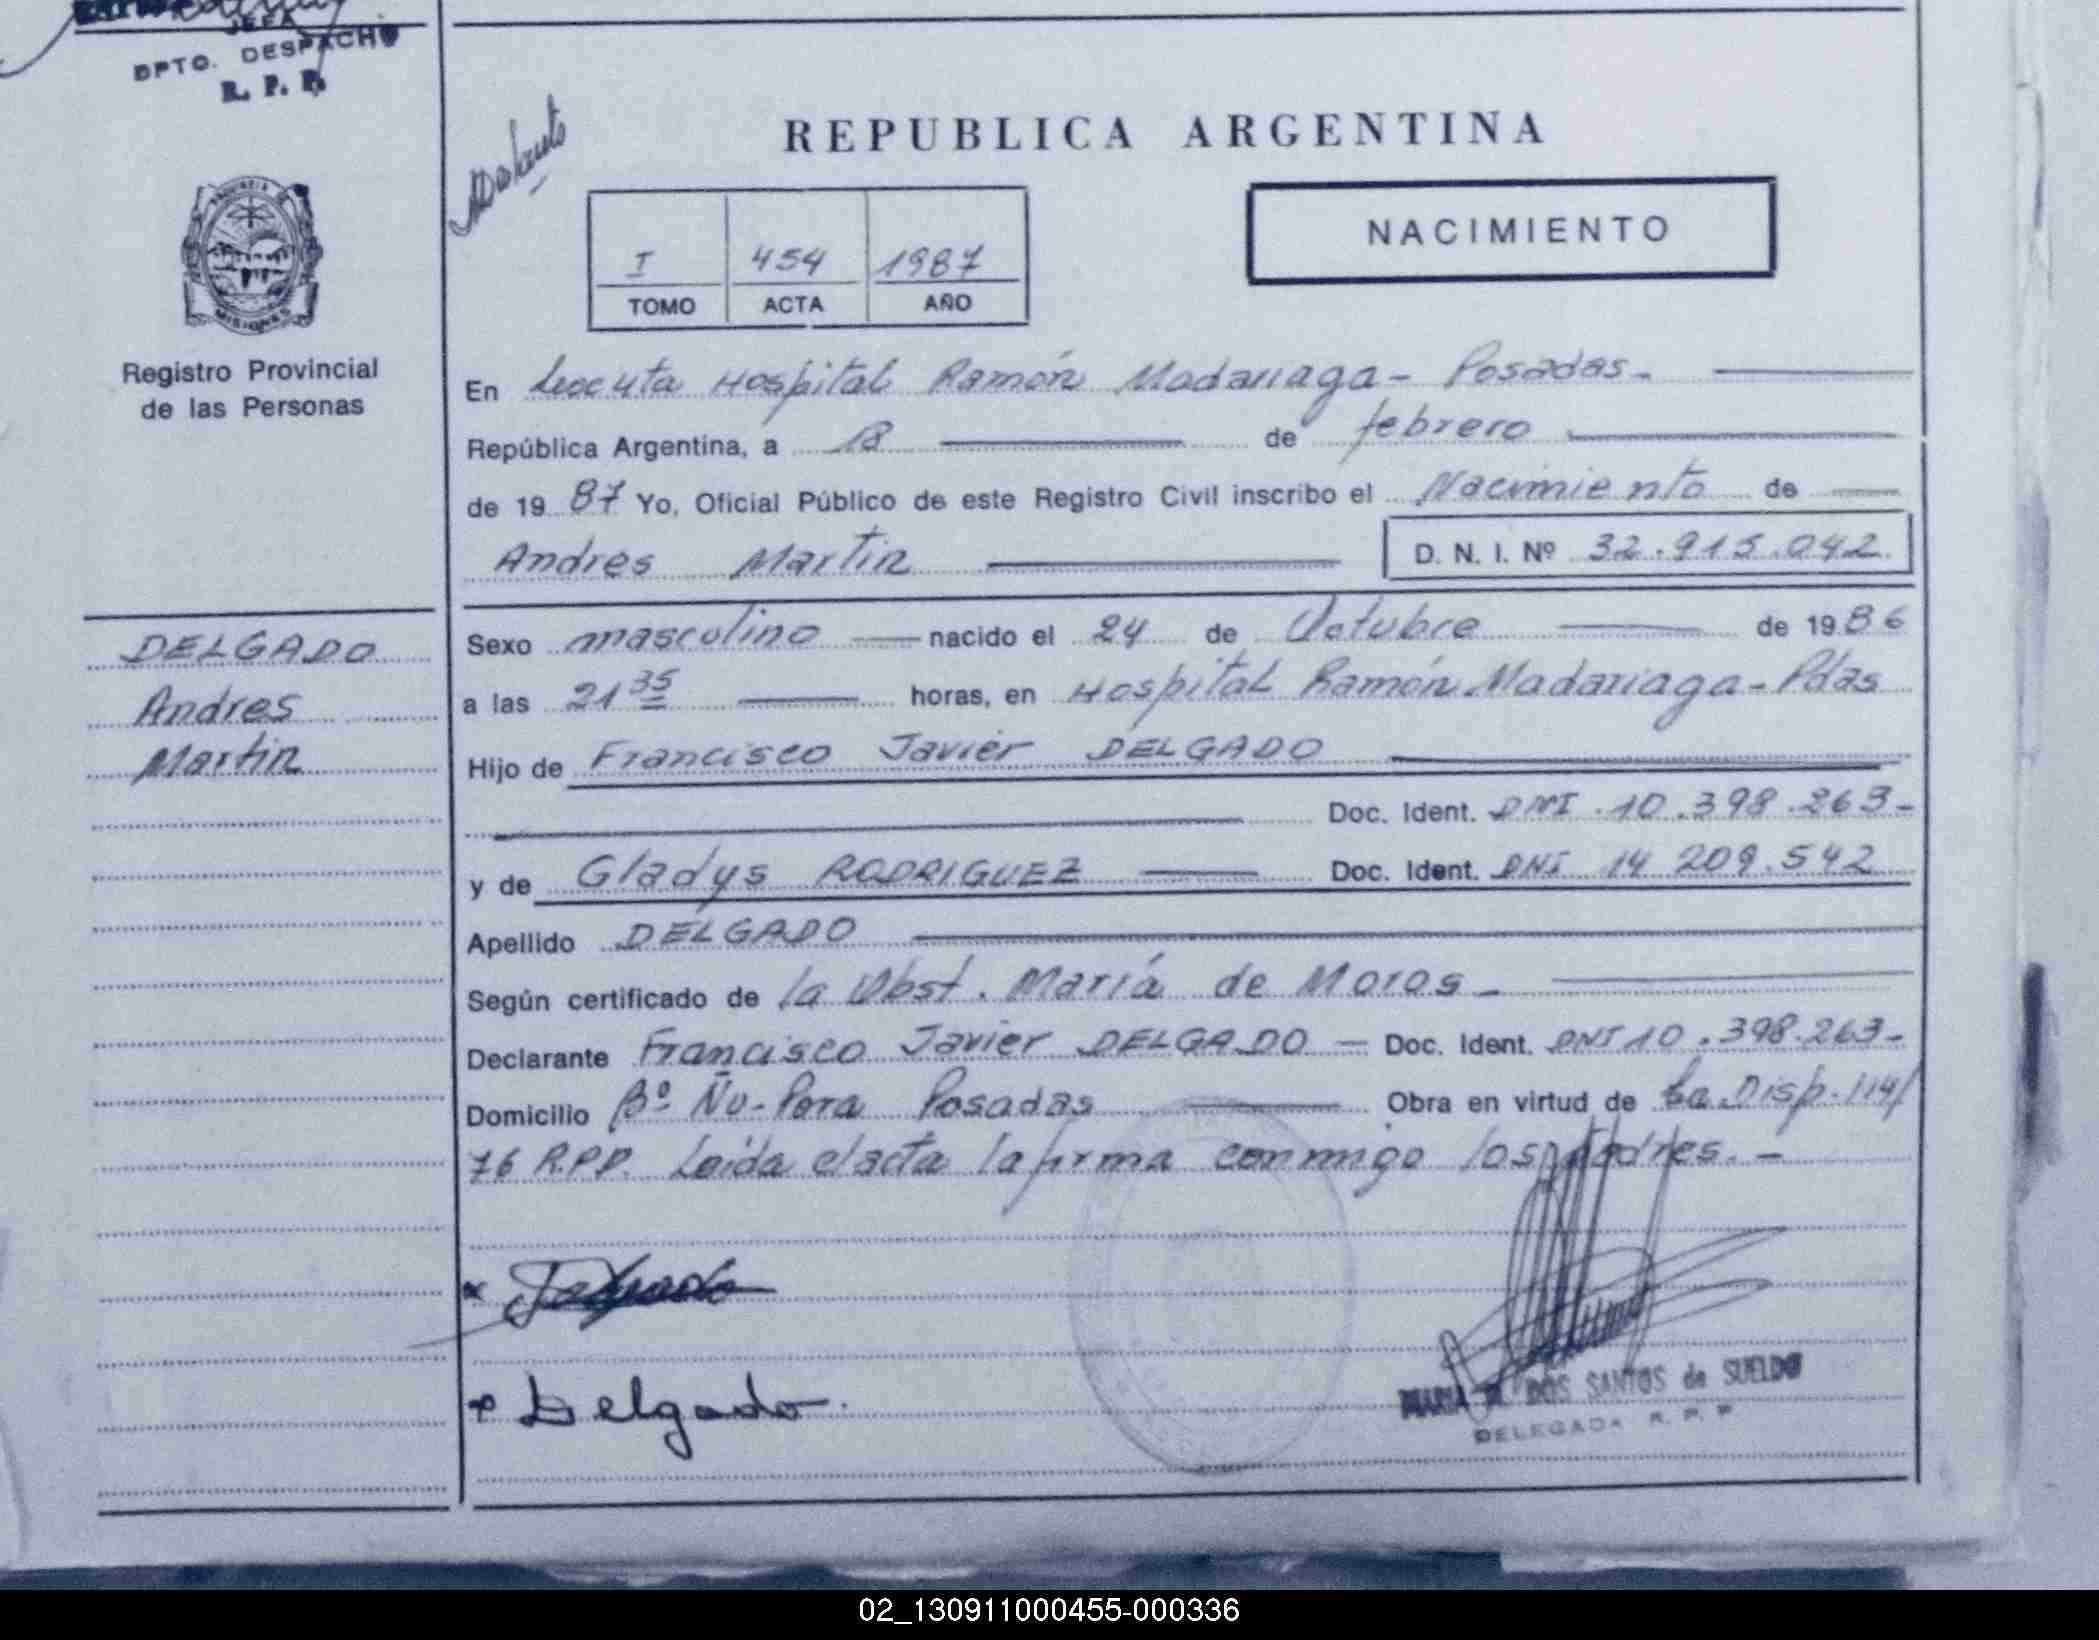 JEFA
DPTO. DESPACHO
R. P. P.
REPUBLICA ARGENTINA
NACIMIENTO
I 454 1987
TOMO ACTA AÑO
PROVINCIA
MISIONES
Registro Provincial
de las Personas
En Hospital Ramón Madariaga - Posadas -
República Argentina, a 18 de febrero
de 19 87 Yo, Oficial Público de este Registro Civil inscribo el Nacimiento de
Andres Martin D. N. I. Nº 32.915.042
DELGADO
Andres
Martin
Sexo masculino nacido el 24 de Octubre de 19 86
a las 21 35 horas, en Hospital Ramón Madariaga - Pdas
Hijo de Francisco Javier DELGADO
Doc. Ident. DNI . 10 . 398 . 263 -
y de Gladys RODRIGUEZ Doc. Ident. DNI 14 209.542
Apellido DELGADO
Según certificado de la Obst. María de Moras -
Declarante Francisco Javier DELGADO - Doc. Ident. DNI 10 . 398.263 -
Domicilio Bº Ñu-Pora Posadas Obra en virtud de La Disp. 114/
76 R.P.P. Leida el acta la firma conmigo los padres. -
Delgado
MARIA DOS SANTOS de SUELDO
DELEGADA R. P. P
02_130911000455-000336